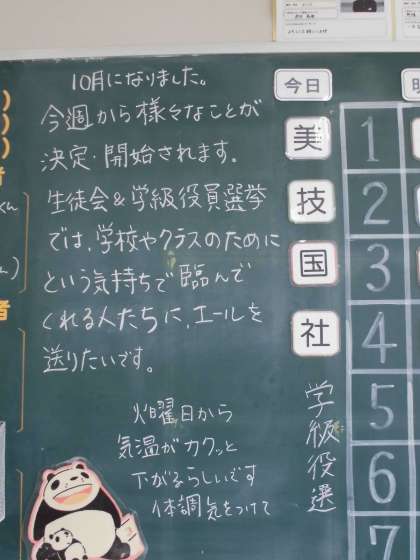 10月になりました。
今週から様々なことが
決定・開始されます。
生徒会&学級役員選挙
では、学校やクラスのために
という気持ちで臨んで
くれる人たちに、エールを
送りたいです。
火曜日から
気温がカクッと
下がるらしいです
体調気をつけて
今日
美
技
国
社
学級役選
1
2
3
4
5
6
7